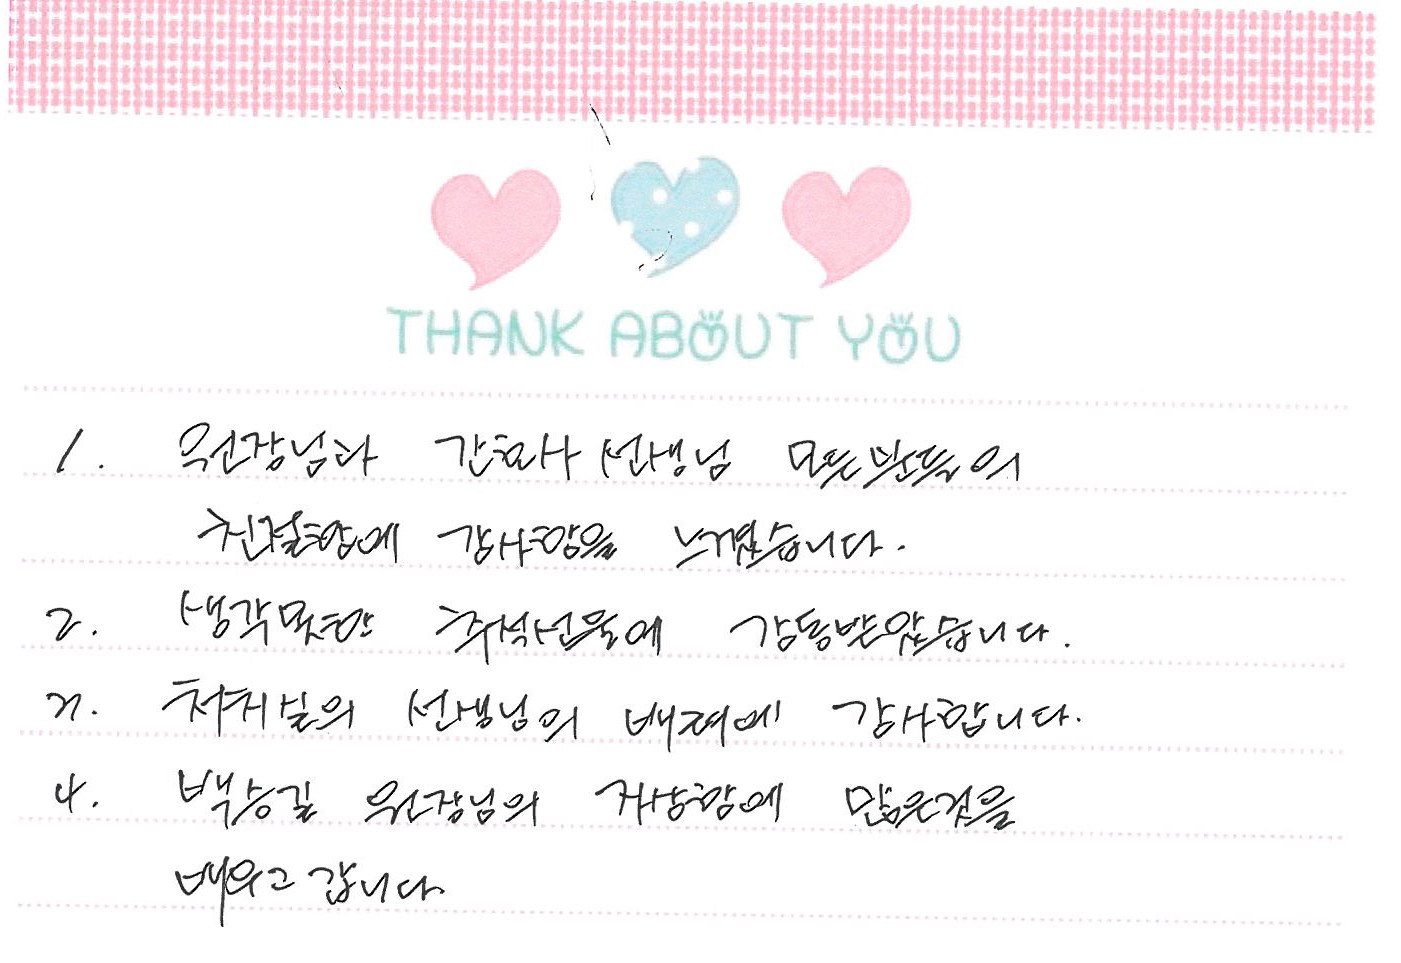 THANK ABOUT YOU
1. 원장님과 간호사 선생님 모든분들의
친절함에 감사함을 느꼈습니다.
2. 생각못한 추석선물에 감동받았습니다.
3. 처치실의 선생님의 배려에 감사합니다.
4. 백승길 원장님의 자상함에 많은것을
배우고 갑니다.